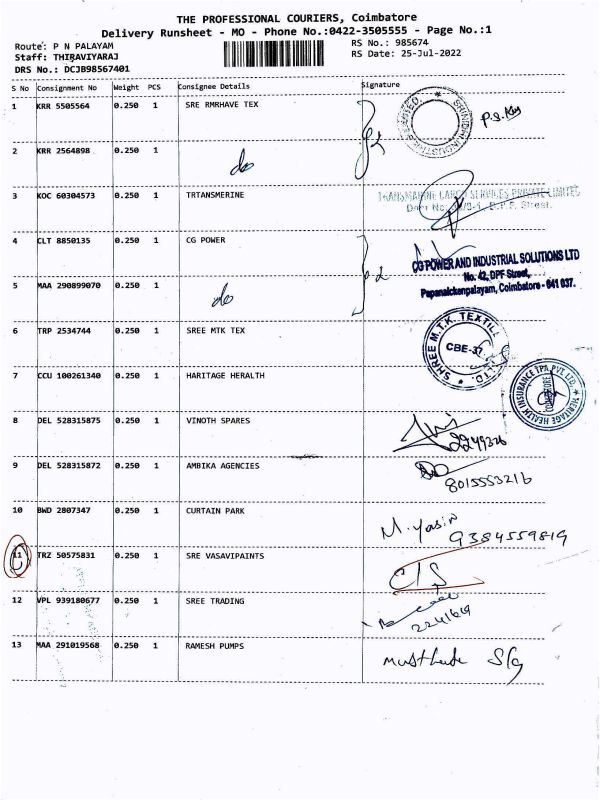 THE PROFESSIONAL COURIERS, Coimbatore
Delivery Runsheet - MO - Phone No.:0422-3505555 - Page No.:1
Route: P N PALAYAM
RS No.: 985674
Staff: THIRAVIYARAJ
RS Date: 25-Jul-2022
DRS No.: DCJB98567401
S No Consignment No Weight PCS Consignee Details Signature
1 KRR 5505564 0.250 1 SRE RMRHAVE TEX
2 KRR 2564898 0.250 1 do
3 KOC 60304573 0.250 1 TRTANSMERINE
TRANSMARINE CARGO SERVICES PRIVATE LIMITED
4 CLT 8850135 0.250 1 CG POWER
CG POWER AND INDUSTRIAL SOLUTIONS LTD
No. 42, DPF Street,
Papanaickenpalayam, Coimbatore - 641 037.
5 MAA 290899070 0.250 1 do
6 TRP 2534744 0.250 1 SREE MTK TEX
SHREE M.T.K. TEXTILE
CBE-37
7 CCU 100261340 0.250 1 HARITAGE HERALTH
HERITAGE HEALTH INSURANCE TPA PVT. LTD.
COIMBATORE
8 DEL 528315875 0.250 1 VINOTH SPARES
2249326
9 DEL 528315872 0.250 1 AMBIKA AGENCIES
8015553216
10 BWD 2807347 0.250 1 CURTAIN PARK
M. Yasin
9384559819
11 TRZ 50575831 0.250 1 SRE VASAVIPAINTS
12 VPL 939180677 0.250 1 SREE TRADING
2241619
13 MAA 291019568 0.250 1 RAMESH PUMPS